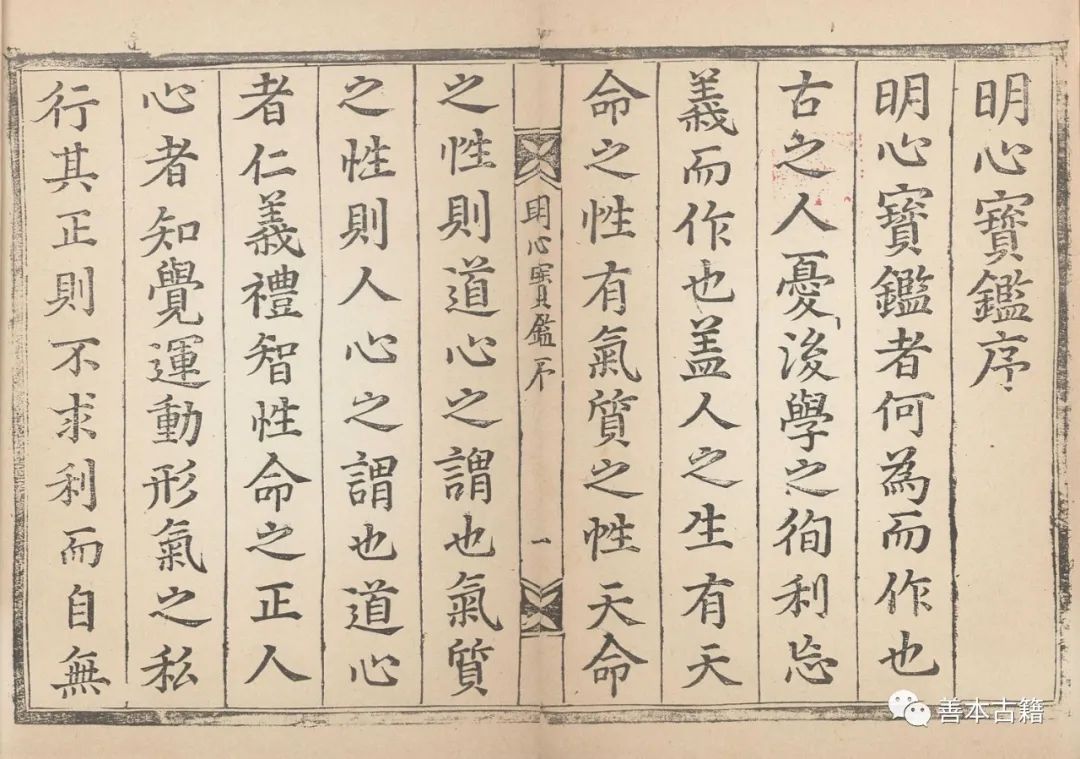 明心寳鑑序
明心寳鑑者何為而作也
古之人憂後學之徇利忘
義而作也盖人之生有天
命之性有氣质之性天命
明心寳鑑序
一
之性則道心之謂也氣質
之性則人心之謂也道心
者仁義禮智性命之正人
心者知覺運動形氣之私
行其正則不求利而自無
善本古籍